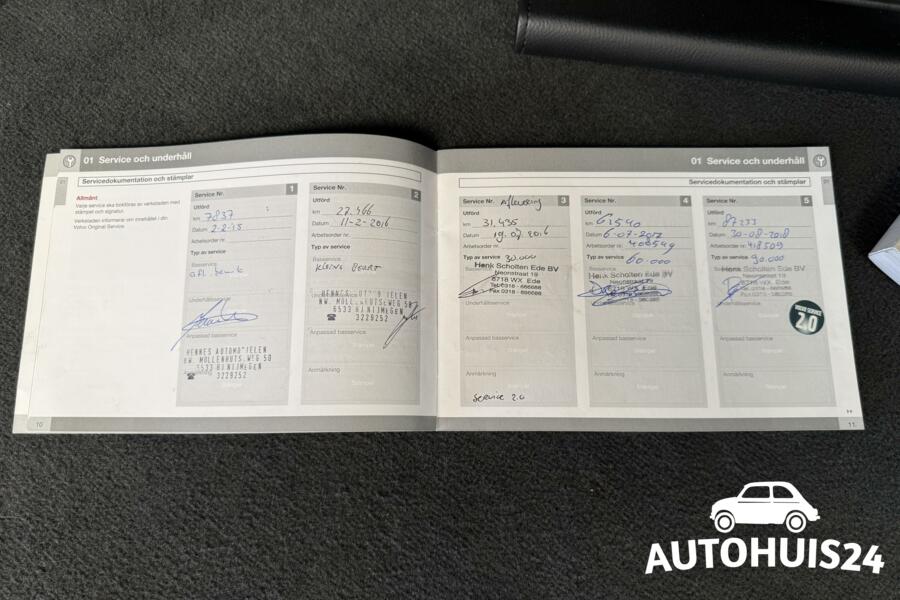 01 Service och underhåll
Servicedokumentation och stämplar
Allmänt
Varje service ska bokföras av verkstaden med
stämpel och signatur.
Verkstaden informerar om innehållet i din
Volvo Original Service.
Service Nr. 1
Utförd
km 7837
Datum 2-2-15
Arbetsorder nr.
Typ av service
Basservice
Underhållsservice
Anpassad basservice
HENNES AUTOMOBIELEN
NW. MOLLENHUTS.WEG 50
6533 HJ NIJMEGEN
☎ 3229252
Anmärkning
Stämpel
Service Nr. 2
Utförd
km 27.466
Datum 11-2-2016
Arbetsorder nr.
Typ av service
Basservice
Kleine Beurt
HENNES
NW. MOLLENHUTSEWEG 50
6533 HJ NIJMEGEN
☎ 3229252
Anpassad basservice
Anmärkning
Stämpel
10
01 Service och underhåll
Servicedokumentation och stämplar
Service Nr. Aflevering 3
Utförd
km 31.435
Datum 19.07.2016
Arbetsorder nr.
Typ av service 30.000
Henk Scholten Ede BV
Neonstraat 19
6718 WX Ede
Tel. 0318 - 656688
Fax 0318 - 656686
Underhållsservice
Anpassad basservice
Anmärkning
Stämpel
Service 2.0
Service Nr. 4
Utförd
km 61540
Datum 6-07-2017
Arbetsorder nr.
Typ av service
Basservice 60.000
Henk Scholten Ede BV
Neonstraat 19
Underhållsservice
Anpassad basservice
Anmärkning
Stämpel
Service Nr. 5
Utförd
km 87233
Datum 30-08-2018
Arbetsorder nr. 418509
Typ av service 90.000
Basservice
Henk Scholten Ede BV
Neonstraat 19
6718 WX Ede
Underhållsservice
VOLVO SERVICE
2.0
Anpassad basservice
Anmärkning
Stämpel
11
AUTOHUIS24